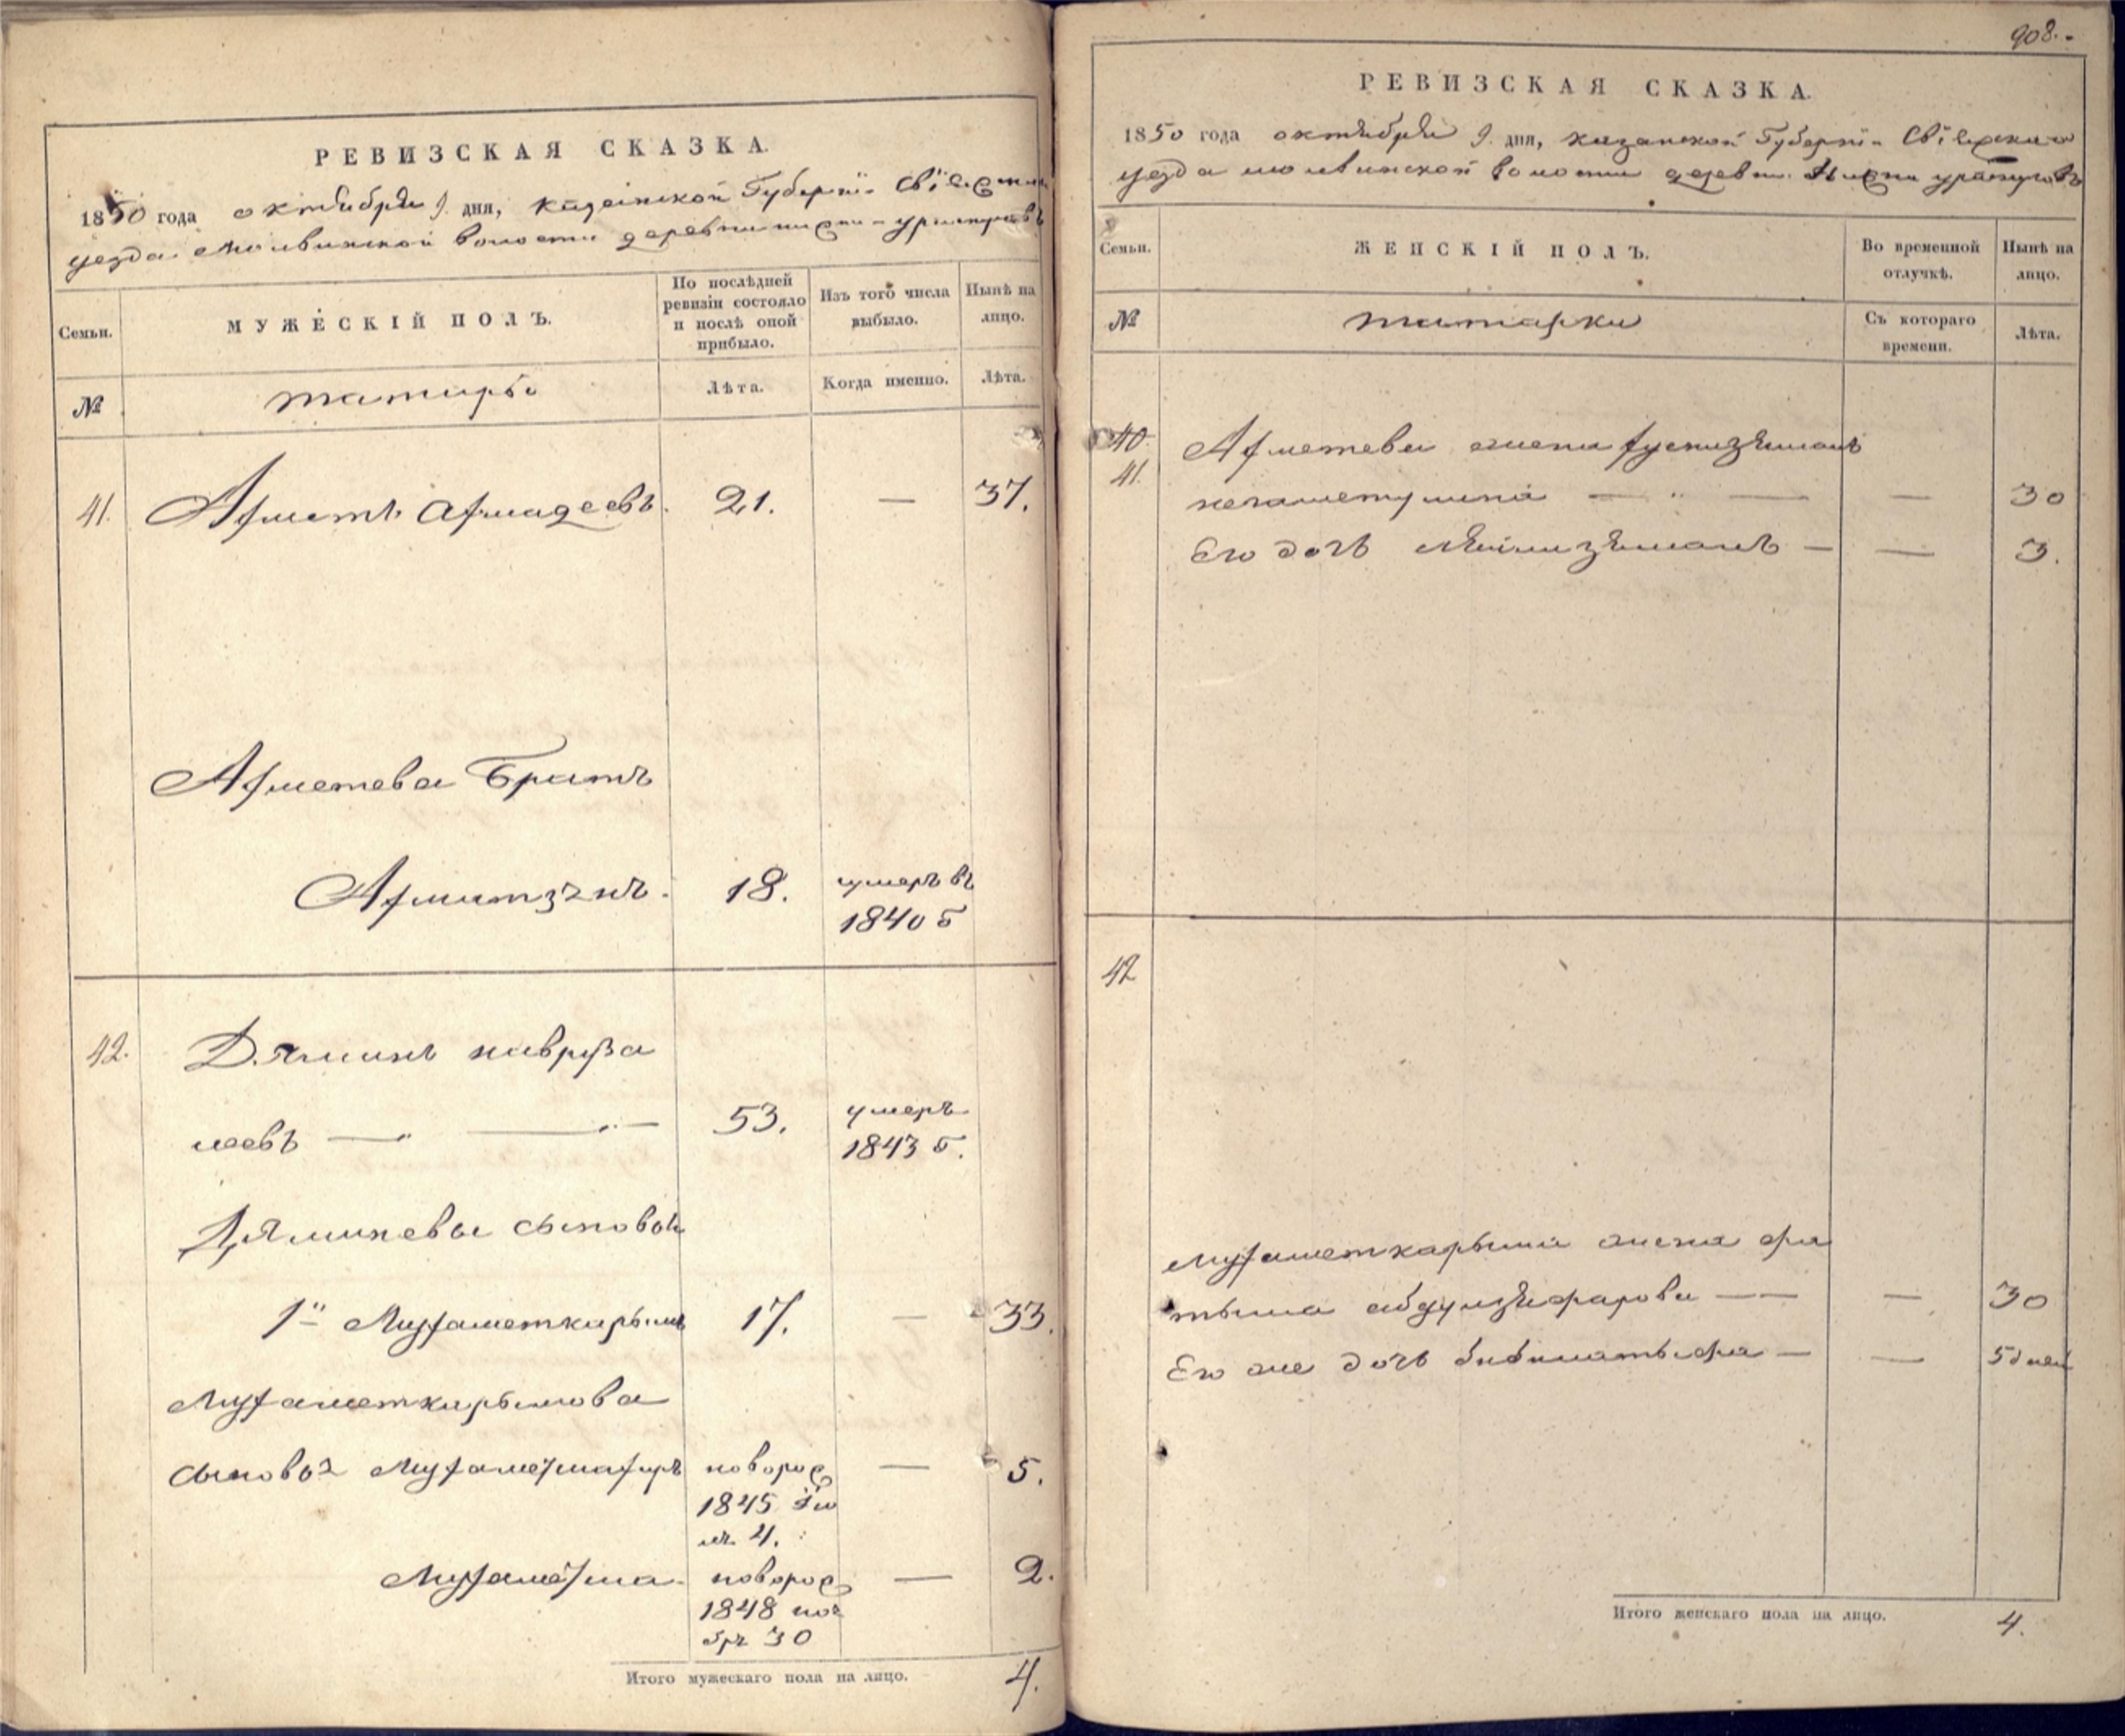 РЕВИЗСКАЯ СКАЗКА.
1850 года октября 9. дня, казанской Губерніи Свіяжскаго
уезда Молвинской волости деревни
МУЖЕСКІЙ ПОЛЪ.
По послѣдней ревизіи состояло и послѣ оной прибыло.
Изъ того числа выбыло.
Нынѣ на лицо.
Семьи.
№
татары
Лѣта.
Когда именно.
Лѣта.
41. Ахметъ Ахмадеевъ. 21. — 37.
Ахметева Братъ
Ахматзянъ. 18. умеръ въ
1840 г
42. Дяминъ
леевъ — 53. умеръ
1843 г.
Дяминевы сыновья
1й Мухаметкарымъ 17. — 33.
Мухаметкарымова
сыновья новорож 5.
1845 Ію
ля 4.
новорож — 2.
1848 ноя
бря 30
Итого мужескаго пола на лицо. 4.
908.
РЕВИЗСКАЯ СКАЗКА.
1850 года октября 9. дня, казанской Губерніи Свіяжскаго
уезда молвинской волости деревни
Семьи.
ЖЕНСКІЙ ПОЛЪ.
Во временной отлучкѣ.
Нынѣ на лицо.
№
татарки
Съ котораго времени.
Лѣта.
40.
41.
Ахметева жена
— — 30
Его дочь — — 3.
42
Мухаметкарыма жена фа
тыма — — 30
Его же дочь — — 5 дней
Итого женскаго пола на лицо. 4.